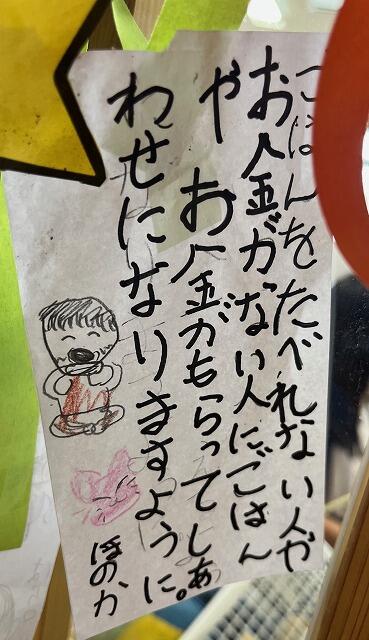 ごはんをたべれない人や
お金がない人にごはん
や お金がもらってしあ
わせになりますように。
ほのか